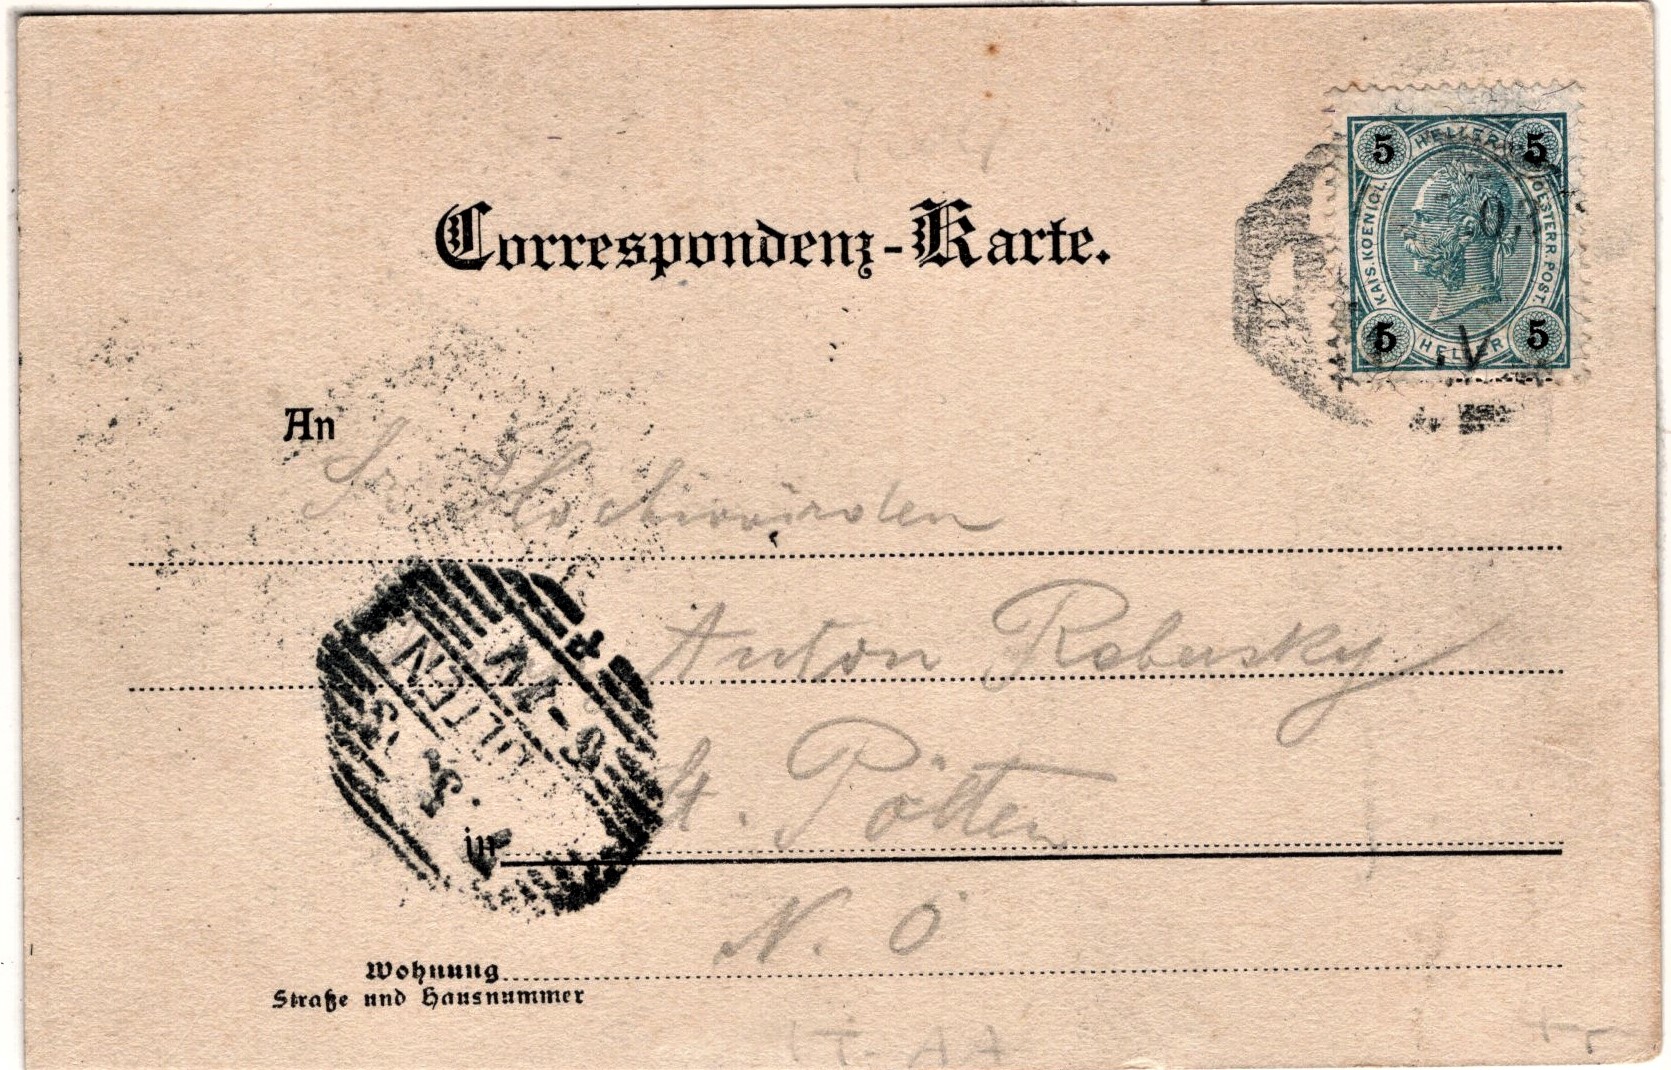 Correspondenz-Karte.
5 HELLER 5
KAIS. KOENIGL.
OESTERR. POST.
5 HELLER 5
An
Sr. Hochwürden
Anton
St. Pölten
in
N. Ö
Wohnung
Straße und Hausnummer